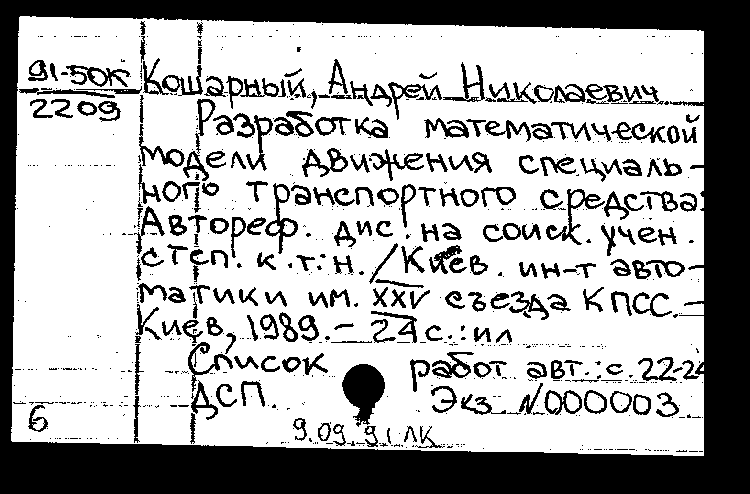 91-50К Кошарный, Андрей Николаевич
2209 Разработка математической
модели движения специаль-
ного транспортного средства:
Автореф. дис. на соиск. учен.
степ. к.т.н. / Киев. ин-т авто-
матики им. XXV съезда КПСС. -
Киев, 1989. - 24 с.: ил
Список работ авт.: с. 22-24
ДСП. Экз. N000003.
6
9.09.91 ЛК